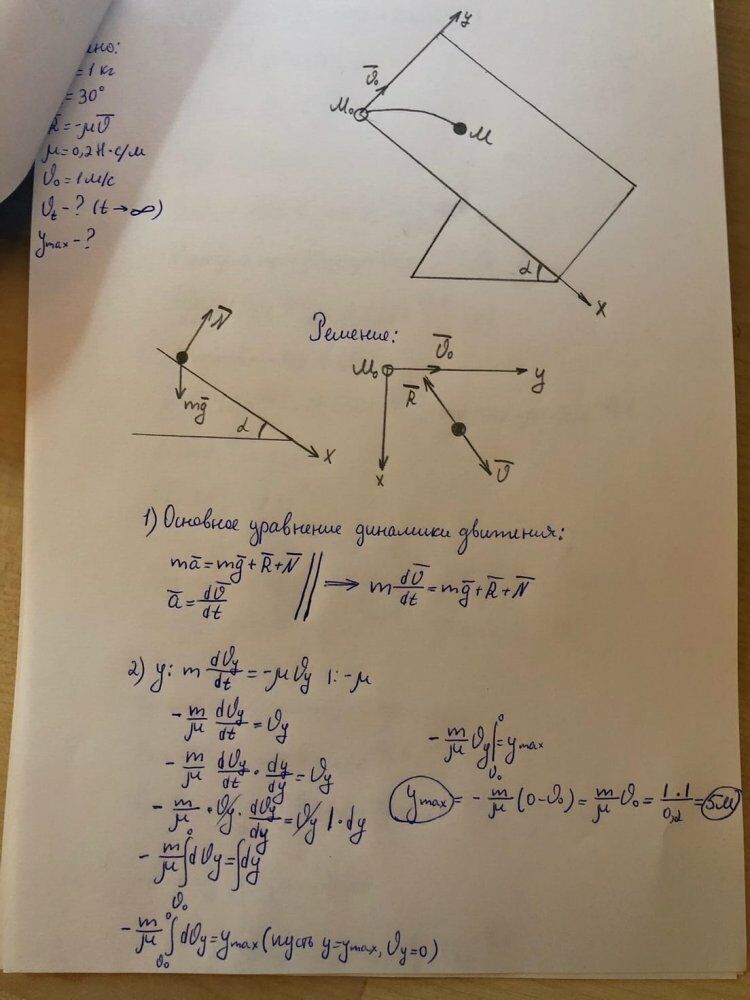 но:
= 1 кг
= 30°
R̅ = -μV̅
μ = 0,2 Н·с/м
V₀ = 1 м/с
Vt - ? (t → ∞)
ymax - ?
y
V̅₀
M₀
M
α
x
N̅
mg̅
α
x
Решение:
M₀
V̅₀
y
R̅
x
V̅
1) Основное уравнение динамики движения:
ma̅ = mg̅ + R̅ + N̅
a̅ = dV̅/dt
⟹ m dV̅/dt = mg̅ + R̅ + N̅
2) y: m dVy/dt = -μVy |: -μ
- m/μ dVy/dt = Vy
- m/μ dVy/dt · dy/dy = Vy
- m/μ · Vy · dVy/dy = Vy | · dy
- m/μ ∫₀ dVy = ∫dy
V₀
- m/μ ∫_V₀^0 dVy = ymax (пусть y = ymax, Vy = 0)
- m/μ Vy |_V₀^0 = ymax
ymax = - m/μ (0 - V₀) = m/μ V₀ = 1·1/0,2 = 5м